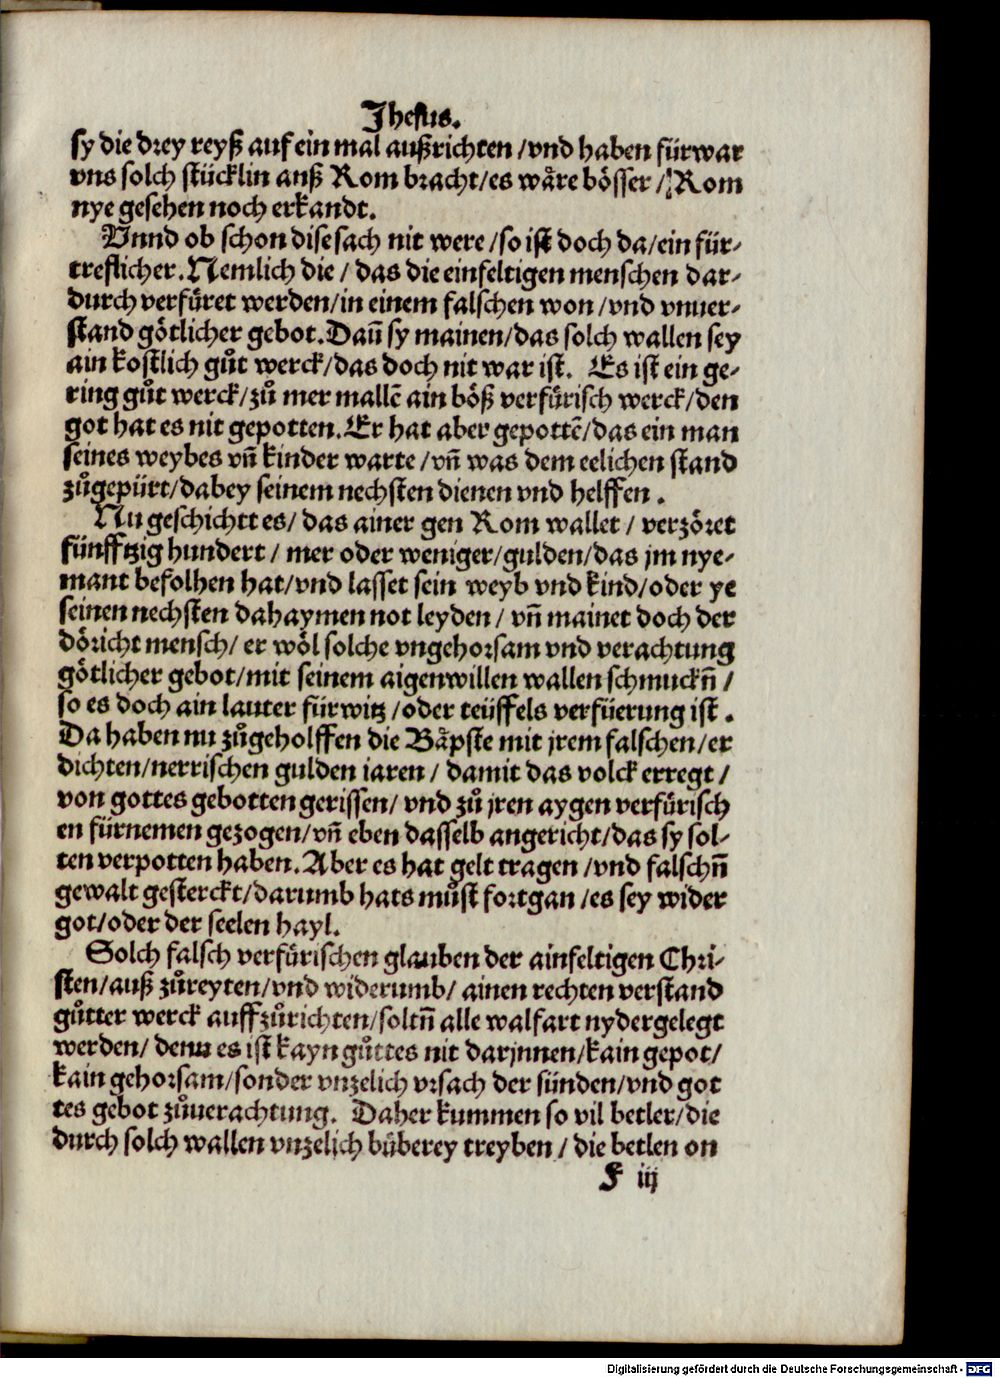 Jhesus.
sy die drey reyß auf ein mal außrichten /vnd haben fürwar
vns solch stücklin auß Rom bracht/es wåre bösser / Rom
nye gesehen noch erkandt.
Vnnd ob schon dise sach nit were /so ist doch da/ein für-
treflicher. Nemlich die / das die einfeltigen menschen dar-
durch verfüret werden/in einem falschen won /vnd vnuer-
stand götlicher gebot. Dañ sy mainen/das solch wallen sey
ain kostlich gůt werck/das doch nit war ist. Es ist ein ge-
ring gůt werck/zů mer mallē ain böß verfürisch werck/den
got hat es nit gepotten. Er hat aber gepottē/das ein man
seines weybes vñ kinder warte /vñ was dem eelichen stand
zůgepürt/dabey seinem nechsten dienen vnd helffen .
Nu geschichtt es/ das ainer gen Rom wallet / verzöret
fünfftzig hundert / mer oder weniger/gulden/das jm nye-
mant befolhen hat/vnd lasset sein weyb vnd kind/oder ye
seinen nechsten dahaymen not leyden / vñ mainet doch der
döricht mensch/ er wöl solche vngehorsam vnd verachtung
götlicher gebot/mit seinem aigenwillen wallen schmuckñ /
so es doch ain lauter fürwitz /oder teüffels verfüerung ist .
Da haben nu zůgeholffen die Båpste mit jrem falschen/er
dichten/nerrischen gulden iaren / damit das volck erregt /
von gottes gebotten gerissen/ vnd zů jren aygen verfürisch
en fürnemen gezogen/vñ eben dasselb angericht/das sy sol-
ten verpotten haben. Aber es hat gelt tragen /vnd falschñ
gewalt gesterckt/darumb hats můst fortgan /es sey wider
got/oder der seelen hayl.
Solch falsch verfürischen glauben der ainfeltigen Chri-
sten/auß zůreyten/vnd widerumb/ ainen rechten verstand
gůtter werck auffzůrichten/soltñ alle walfart nydergelegt
werden/ denn es ist kayn gůttes nit darjnnen/kain gepot/
kain gehorsam/sonder vnzelich vrsach der sünden/vnd got
tes gebot zůuerachtung. Daher kummen so vil betler/die
durch solch wallen vnzelich büberey treyben / die betlen on
F iij
Digitalisierung gefördert durch die Deutsche Forschungsgemeinschaft - DFG